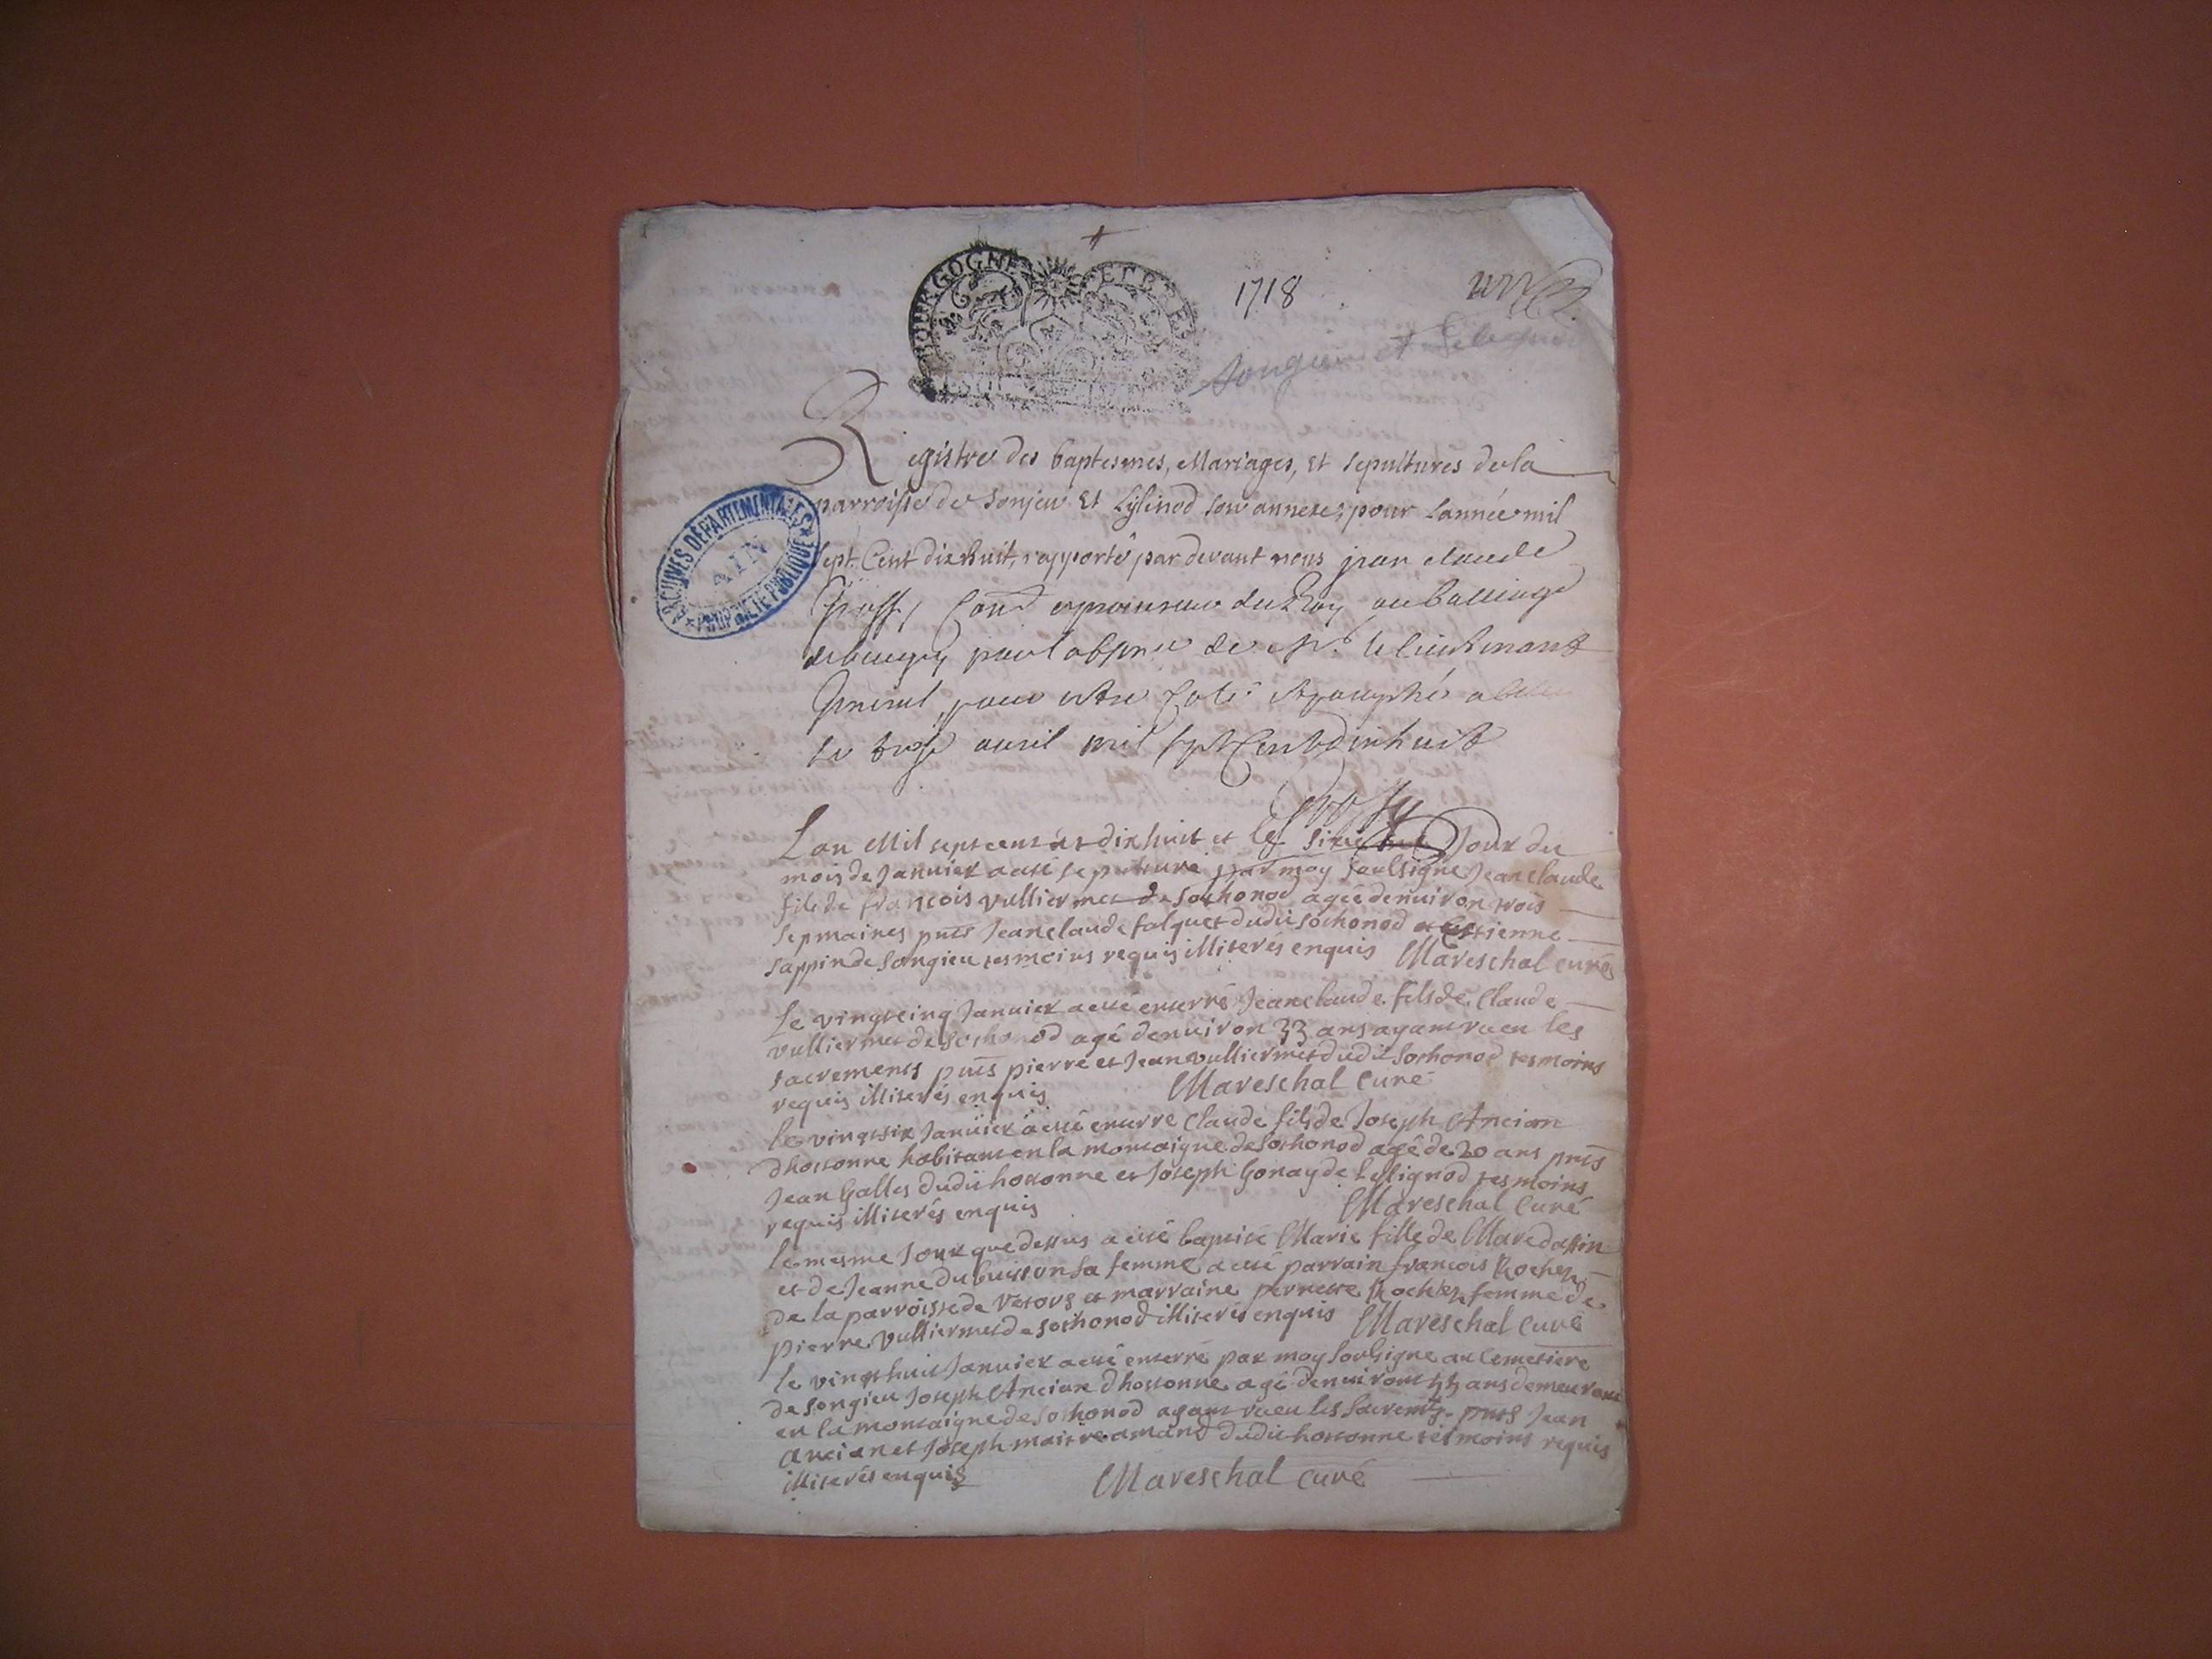 BOURGOGNE ET BRES
1718
Songieu et
Registre des baptesmes, Mariages, et sepultures de la
parroisse de Sonjeu Et Lilinod son annexe, pour l'année mil
sept Cent dix huit, rapporté par devant nous jean claude
procureur du Roy au balliage
de bugey pour l'absence de Mr le lieutenant
General, pour estre Coté et paraphé a
le avril mil sept Cent dix huit
ARCHIVES DÉPARTEMENTALES
AIN
PROPRIÉTÉ PUBLIQUE
L'an Mil sept cent et dix huit et le Jour du
mois de Janvier a esté sepulturé par moy soubsigne Jean claude
fils de francois vulliermet de sothonod agée denuiron trois
sepmaines pnts Jeanclaude falquet dudit sothonod et Estienne
sappin de Songieu tesmoins requis illiterés enquis Mareschal curé
Le vingtcinq Janvier a esté enterré Jeanclaude fils de Claude
vulliermet de sothonod agé denuiron 33 ans ayant receu les
sacrements pnts pierre et Jean vulliermet dudit sothonod tesmoins
requis illiterés enquis Mareschal Curé
le vingtsix Janvier a esté enterré Claude fils de Joseph Ancian
dhostonne habitant en la montaigne de Sothonod agé de 20 ans pnts
Jean Galles dudit hostonne et Joseph Gonay de Lilignod tesmoins
requis illiterés enquis Mareschal Curé
le mesme Jour que dessus a esté baptisé Marie fille de Marc dassin
et de Jeanne du buisson sa femme a esté parrain francois Rochex
de la parroisse de et marraine pernette Rochex femme de
pierre vulliermet de sothonod illiterés enquis Mareschal Curé
le vingt huit Janvier a esté enterré par moy Soubsigne au Cemetiere
de songieu Joseph Anciane dhostonne agé denuiront 55 ans demeurant
en la montaigne de sothonod ayant receu les Sacremts. pnts Jean
ancian et Joseph maitre amand dudit hostonne tesmoins requis
illiterés enquis Mareschal curé